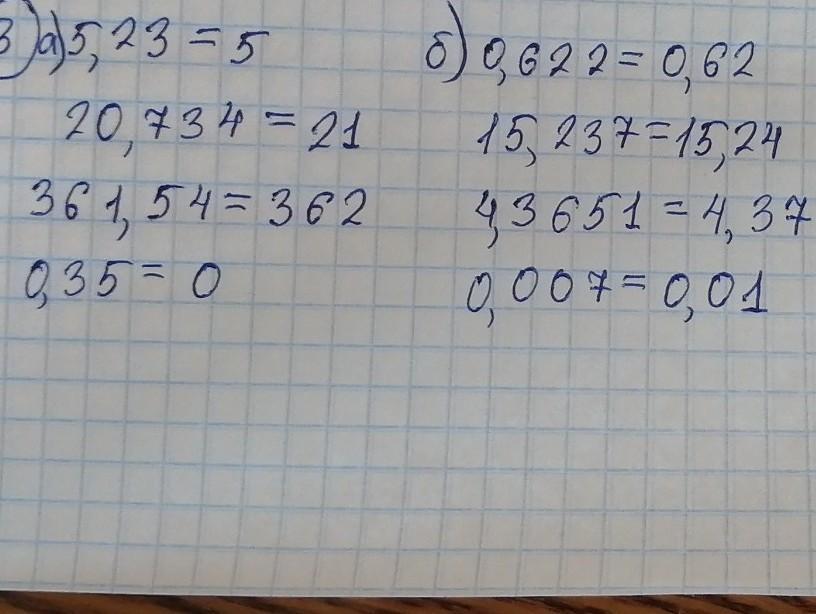 3) а) 5,23 = 5
20,734 = 21
361,54 = 362
0,35 = 0
б) 0,622 = 0,62
15,237 = 15,24
4,3651 = 4,37
0,007 = 0,01